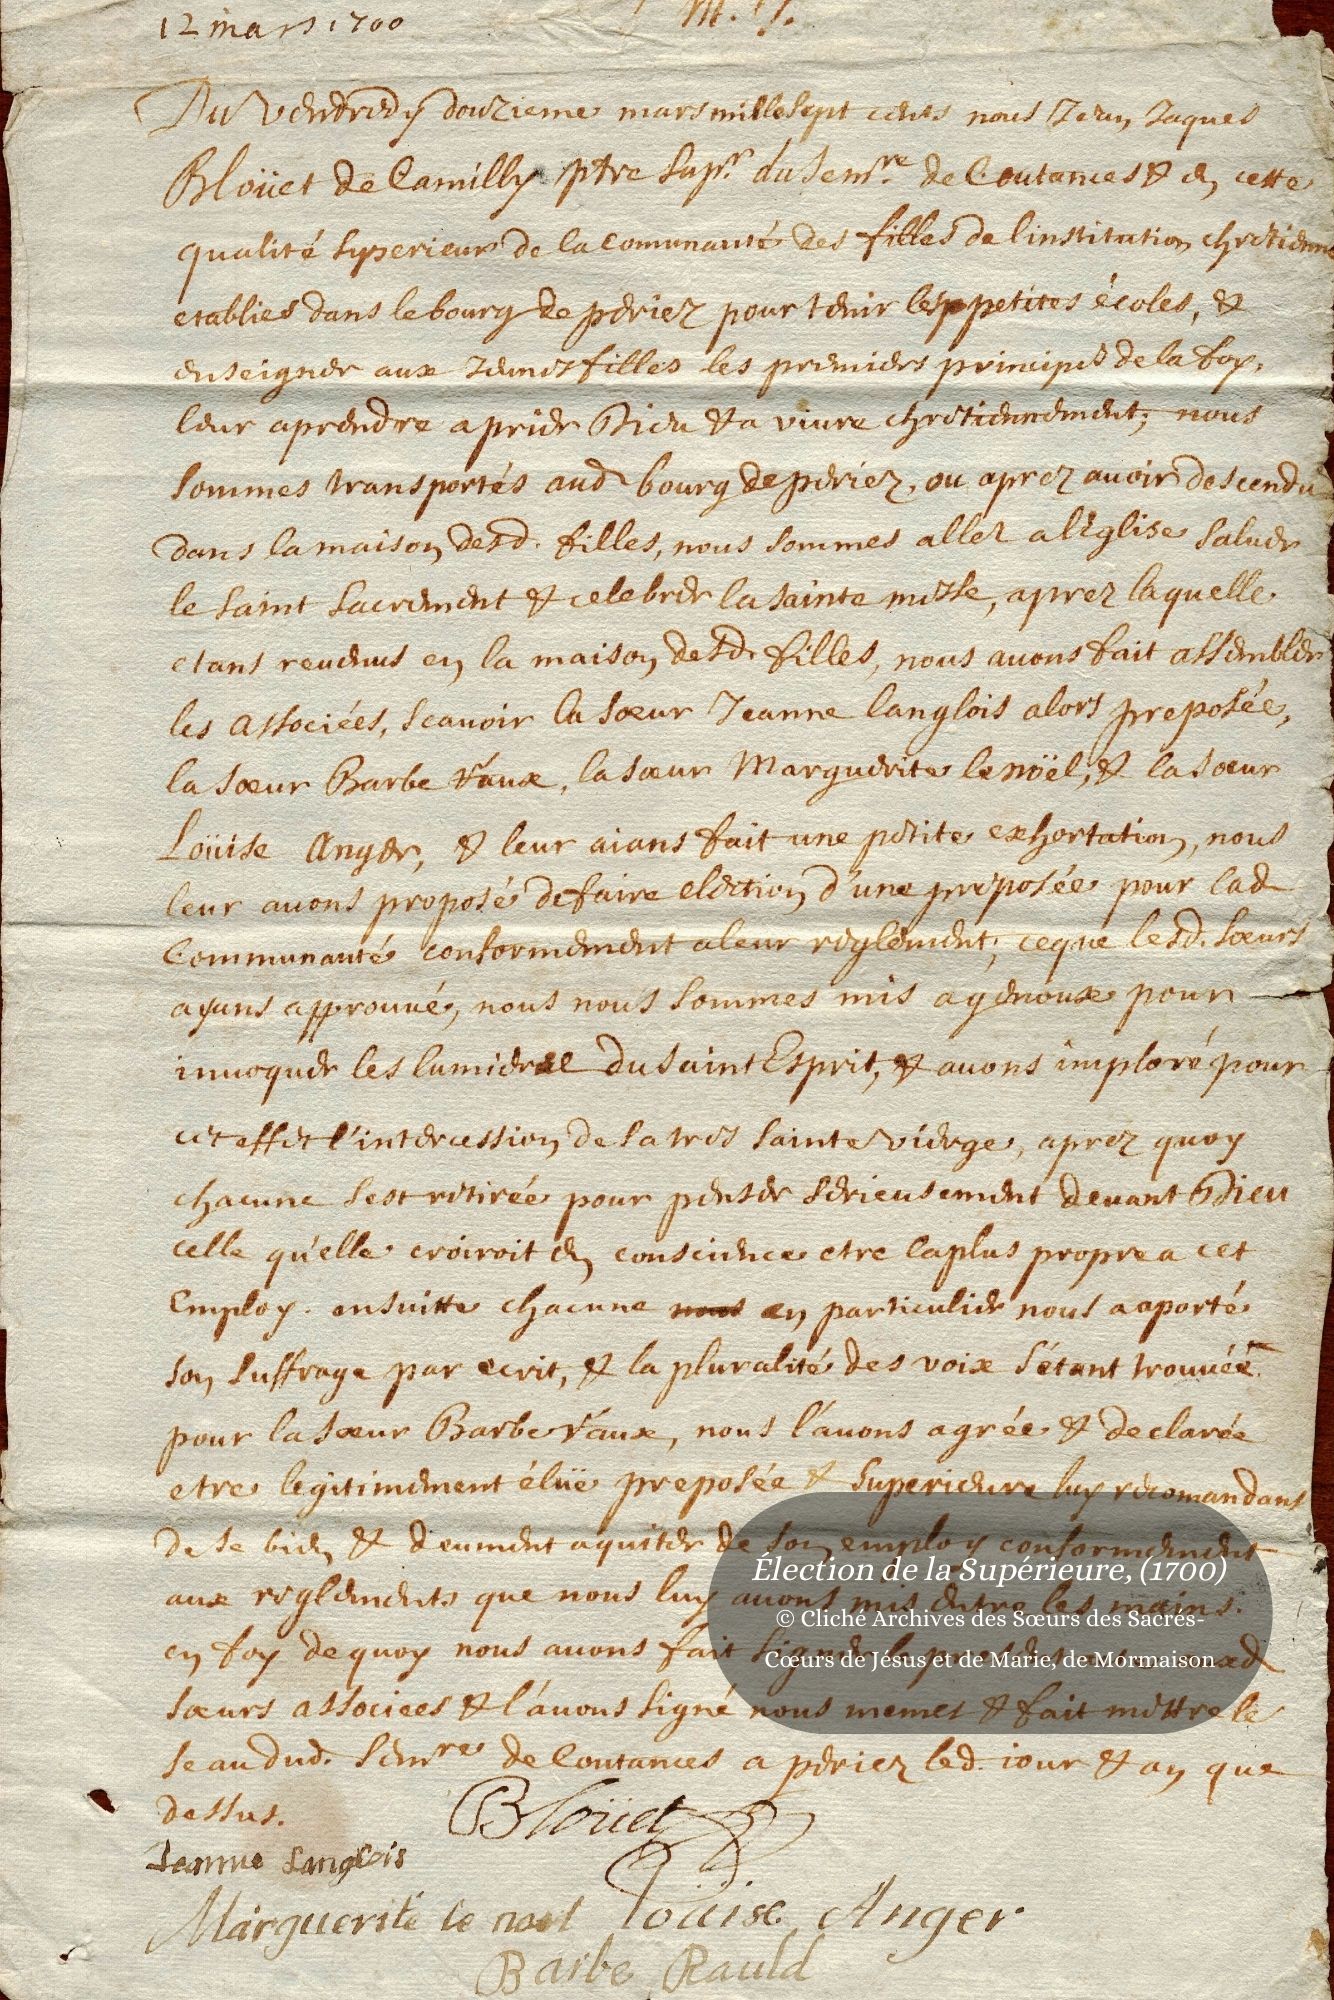 12 mars 1700
Du vendredy douzieme mars mille sept cents nous Jean Jaques
Bloüet de Camilly ptre supr. du semre. de Coutances & en cette
qualité superieur de la comunauté des filles de l'institution chretienne
etablies dans le bourg de periez pour tenir les petites écoles, &
enseigner aux jeunes filles les premiers principes de la foy,
leur aprendre a prier Dieu & a viure chretiennement; nous
sommes transportés aud bourg de periez, ou aprez auoir descendu
dans la maison desd. filles, nous sommes allez a l'Eglise saluer
le saint sacrement & celebrer la sainte messe, aprez laquelle
etans reuenus en la maison desd. filles, nous auons fait assembler
les associées, scauoir la sœur Jeanne langlois alors preposée,
la sœur Barbe raux, la sœur Marguerite le noël, & la sœur
Loüise Anger, & leur aians fait une petite exhortation, nous
leur auons proposé de faire election d'une preposée pour lad
Communauté conformement a leur reglement; ce que lesd. sœurs
ayans approuué, nous nous sommes mis a genoux pour
inuoquer les lumieres du saint Esprit, & auons imploré pour
cet effet l'intercession de la tres sainte vierge, aprez quoy
chacune s'est retirée pour penser serieusement deuant Dieu
celle qu'elle croiroit en conscience etre la plus propre a cet
Employ. ensuitte chacune nous en particulier nous a aporté
son suffrage par ecrit, & la pluralité des voix s'étant trouuéé
pour la sœur Barbe raux, nous l'auons agrée & declarée
etre legitimement élüe preposée & superieure luy recomandans
de se bien & deument aquiter de son employ conformement
aux reglements que nous luy auons mis entre les mains.
en foy de quoy nous auons fait signer le present
sœurs associees & l'auons signé nous memes & fait mettre le
seau dud. semre de Coutances a periez led. iour & an que
dessus.
Bloüet
Jeanne Langlois
Marguerite le noel Loüise Anger
Barbe Rauld
Élection de la Supérieure, (1700)
© Cliché Archives des Sœurs des Sacrés-
Cœurs de Jésus et de Marie, de Mormaison